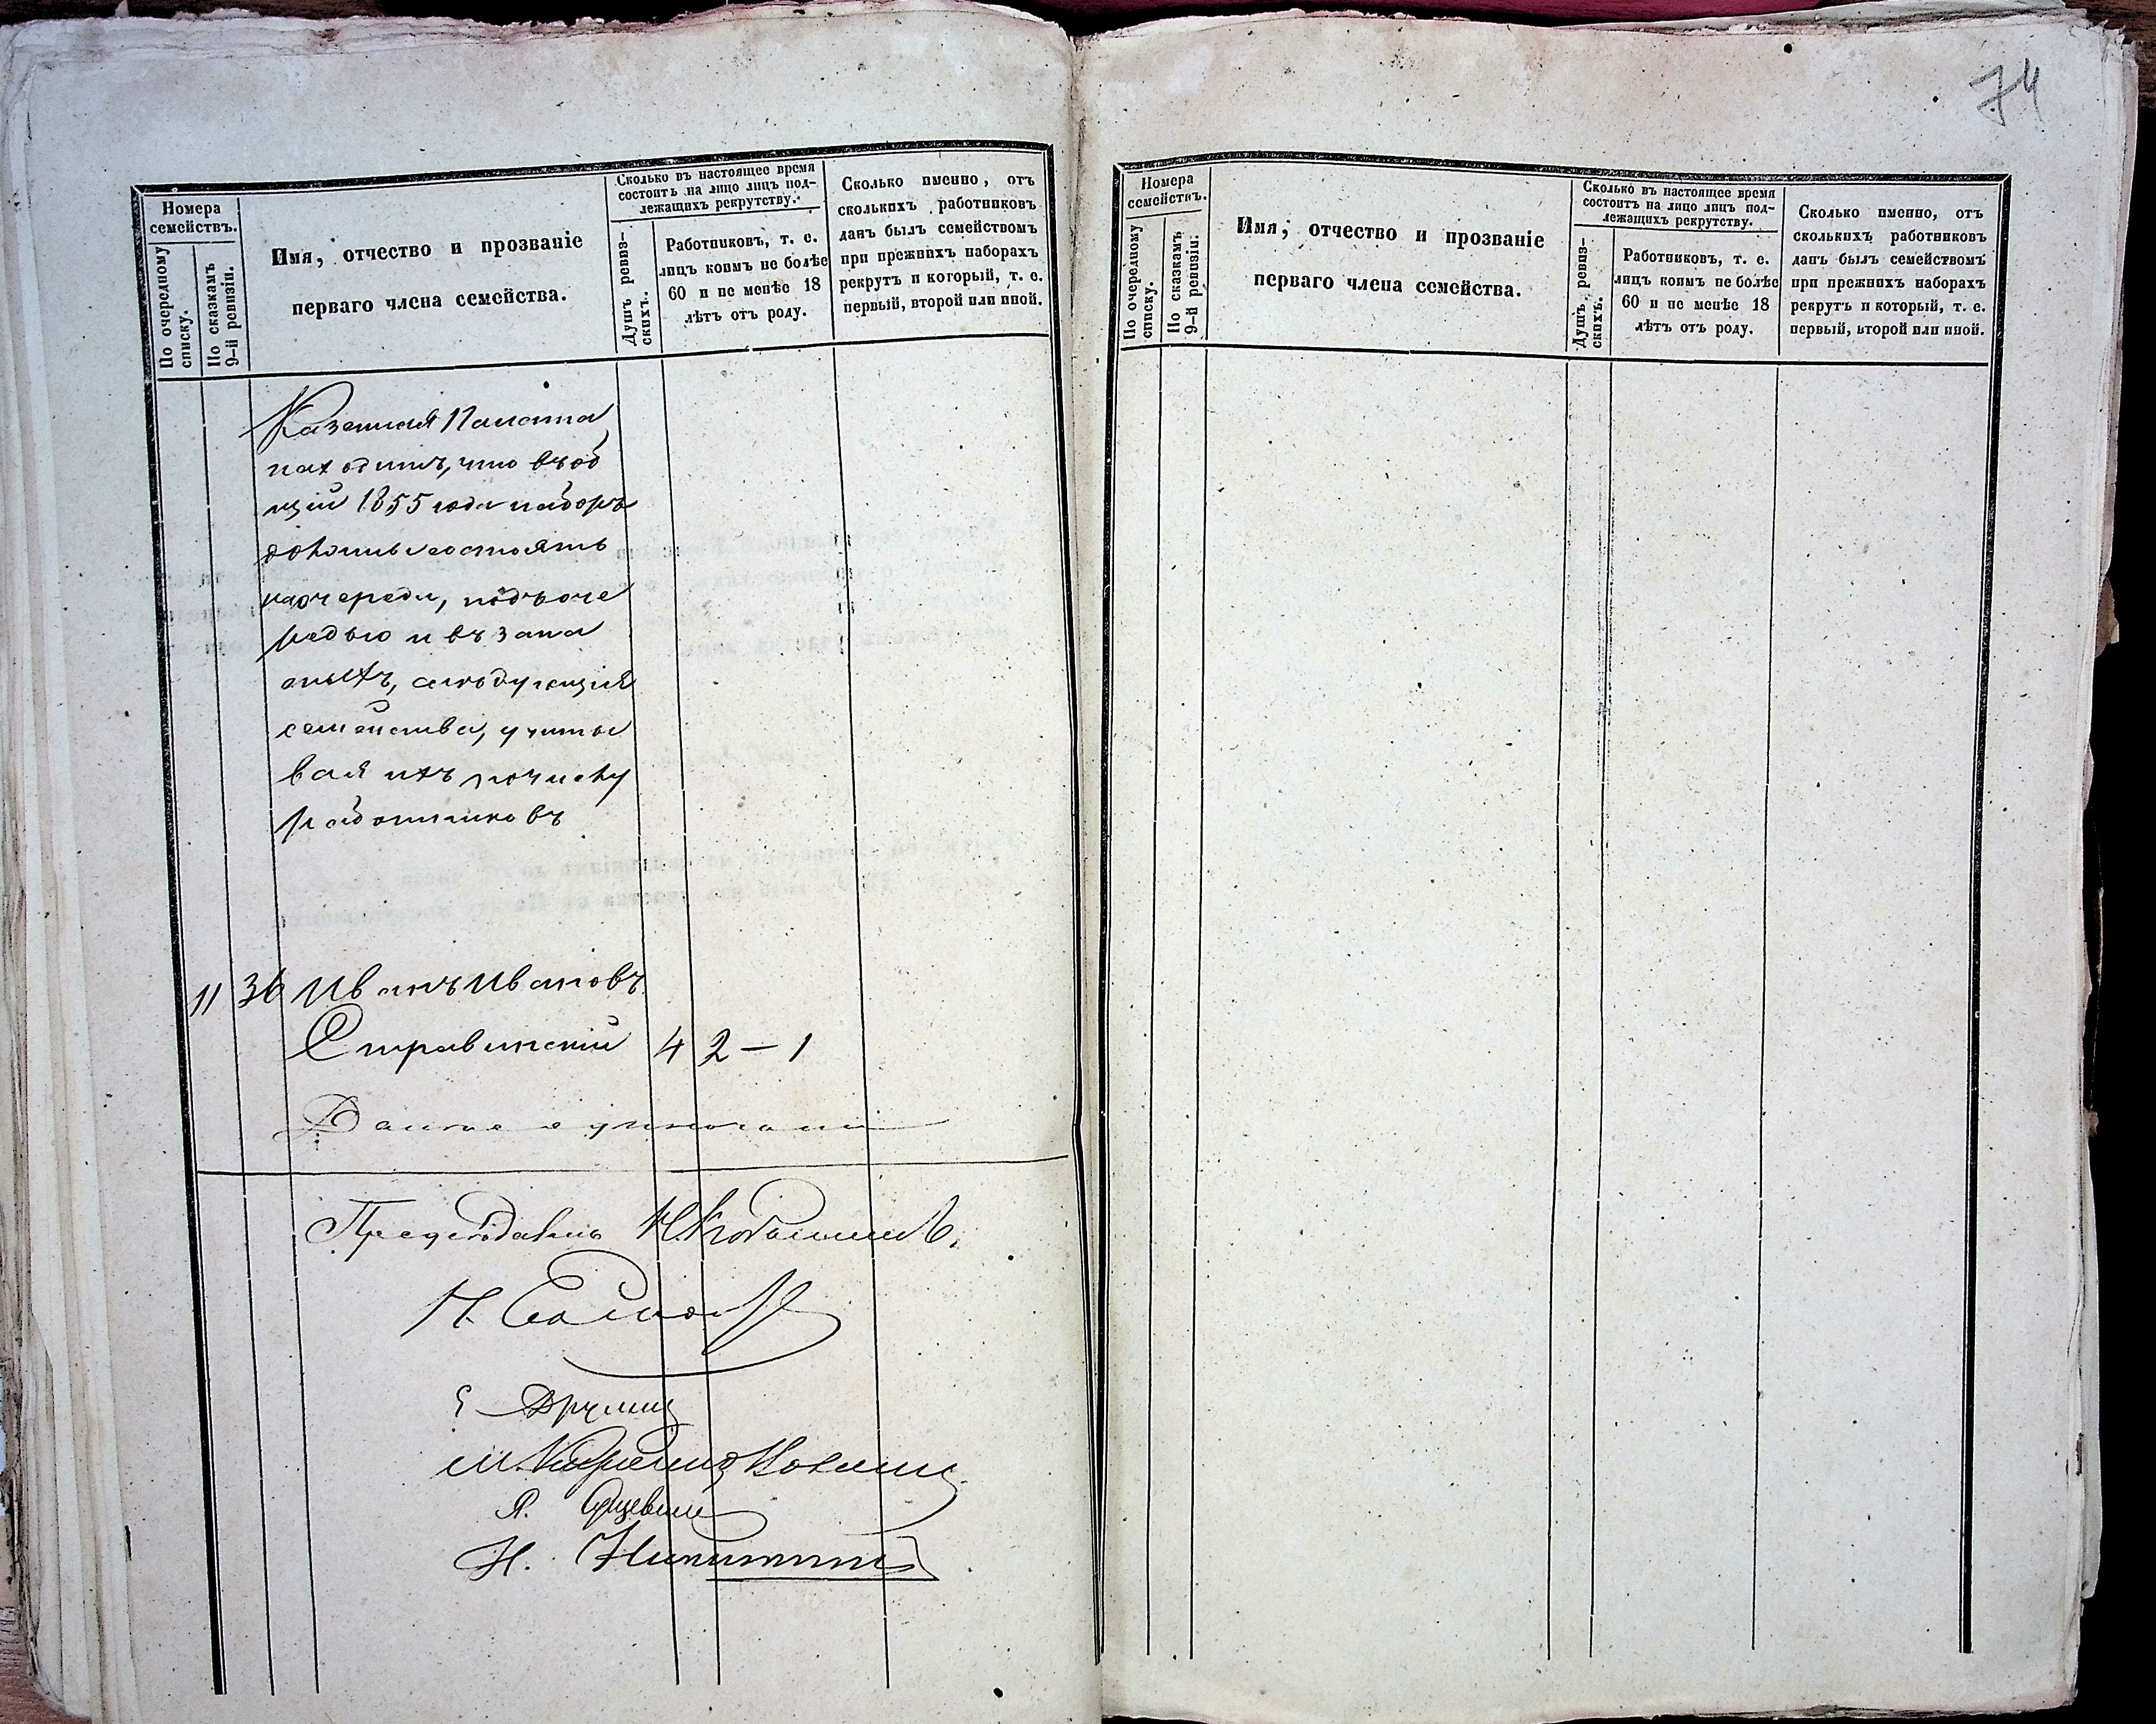 74
Номера
семействъ.
По очередному
списку.
По сказкамъ
9-й ревизіи.
Имя, отчество и прозваніе
перваго члена семейства.
Сколько въ настоящее время
состоитъ на лицо лицъ под-
лежащихъ рекрутству.
Душъ ревиз-
скихъ.
Работниковъ, т. е.
лицъ коимъ не болѣе
60 и не менѣе 18
лѣтъ отъ роду.
Сколько именно, отъ
сколькихъ работниковъ
данъ былъ семействомъ
при прежнихъ наборахъ
рекрутъ и который, т. е.
первый, второй или иной.
Казенная Палата
находитъ, что въ об
щій 1855 года наборъ
должны состоять
на очереди, подъ оче
редью и въ запа
сныхъ, слѣдующія
семейства, учиты
вая ихъ по числу
работниковъ
11 36 Иванъ Ивановъ
Стравинскій 4 2 — 1
Далѣе одиночки
Предсѣдатель Н.
Н.
Е
М.
Я.
Н.
Номера
семействъ.
По очередному
списку.
По сказкамъ
9-й ревизіи.
Имя, отчество и прозваніе
перваго члена семейства.
Сколько въ настоящее время
состоитъ на лицо лицъ под-
лежащихъ рекрутству.
Душъ ревиз-
скихъ.
Работниковъ, т. е.
лицъ коимъ не болѣе
60 и не менѣе 18
лѣтъ отъ роду.
Сколько именно, отъ
сколькихъ работниковъ
данъ былъ семействомъ
при прежнихъ наборахъ
рекрутъ и который, т. е.
первый, второй или иной.